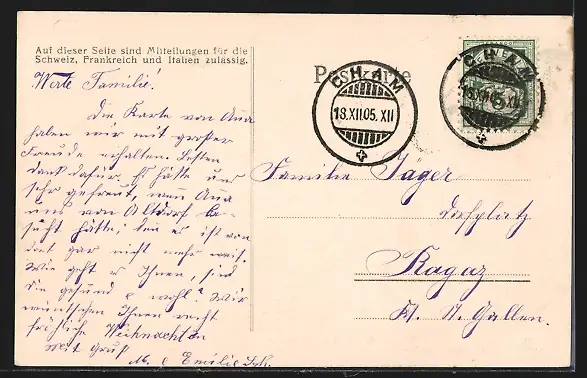 Auf dieser Seite sind Mitteilungen für die
Schweiz, Frankreich und Italien zulässig.
Postkarte
CHAM
18.XII.05. XII
CHAM
18.XII.05. XII
Werte Familie!
Die Karte von Ana
haben wir mit großer
Freude erhalten. Besten
Dank dafür. Es hätte uns
sehr gefreut, wenn Ana
uns von Altdorf be-
sucht hätte; es ist von
dort gar nicht mehr weit.
Wie geht es Ihnen, sind
Sie gesund & wohl? Wir
wünschen Ihnen recht
fröhliche Weihnachten
mit Gruß
M. & Emilie
Familie Jäger
Dorfplatz
Ragaz
Kt. St. Gallen.